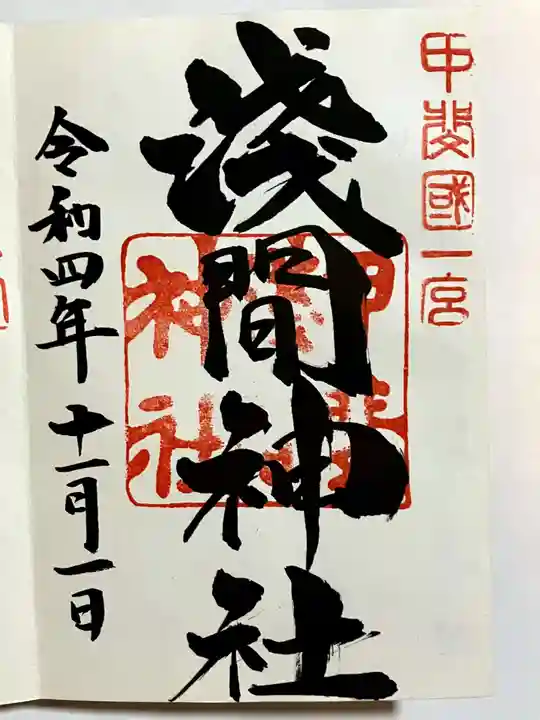 甲斐國一宮
浅間神社
令和四年十一月一日